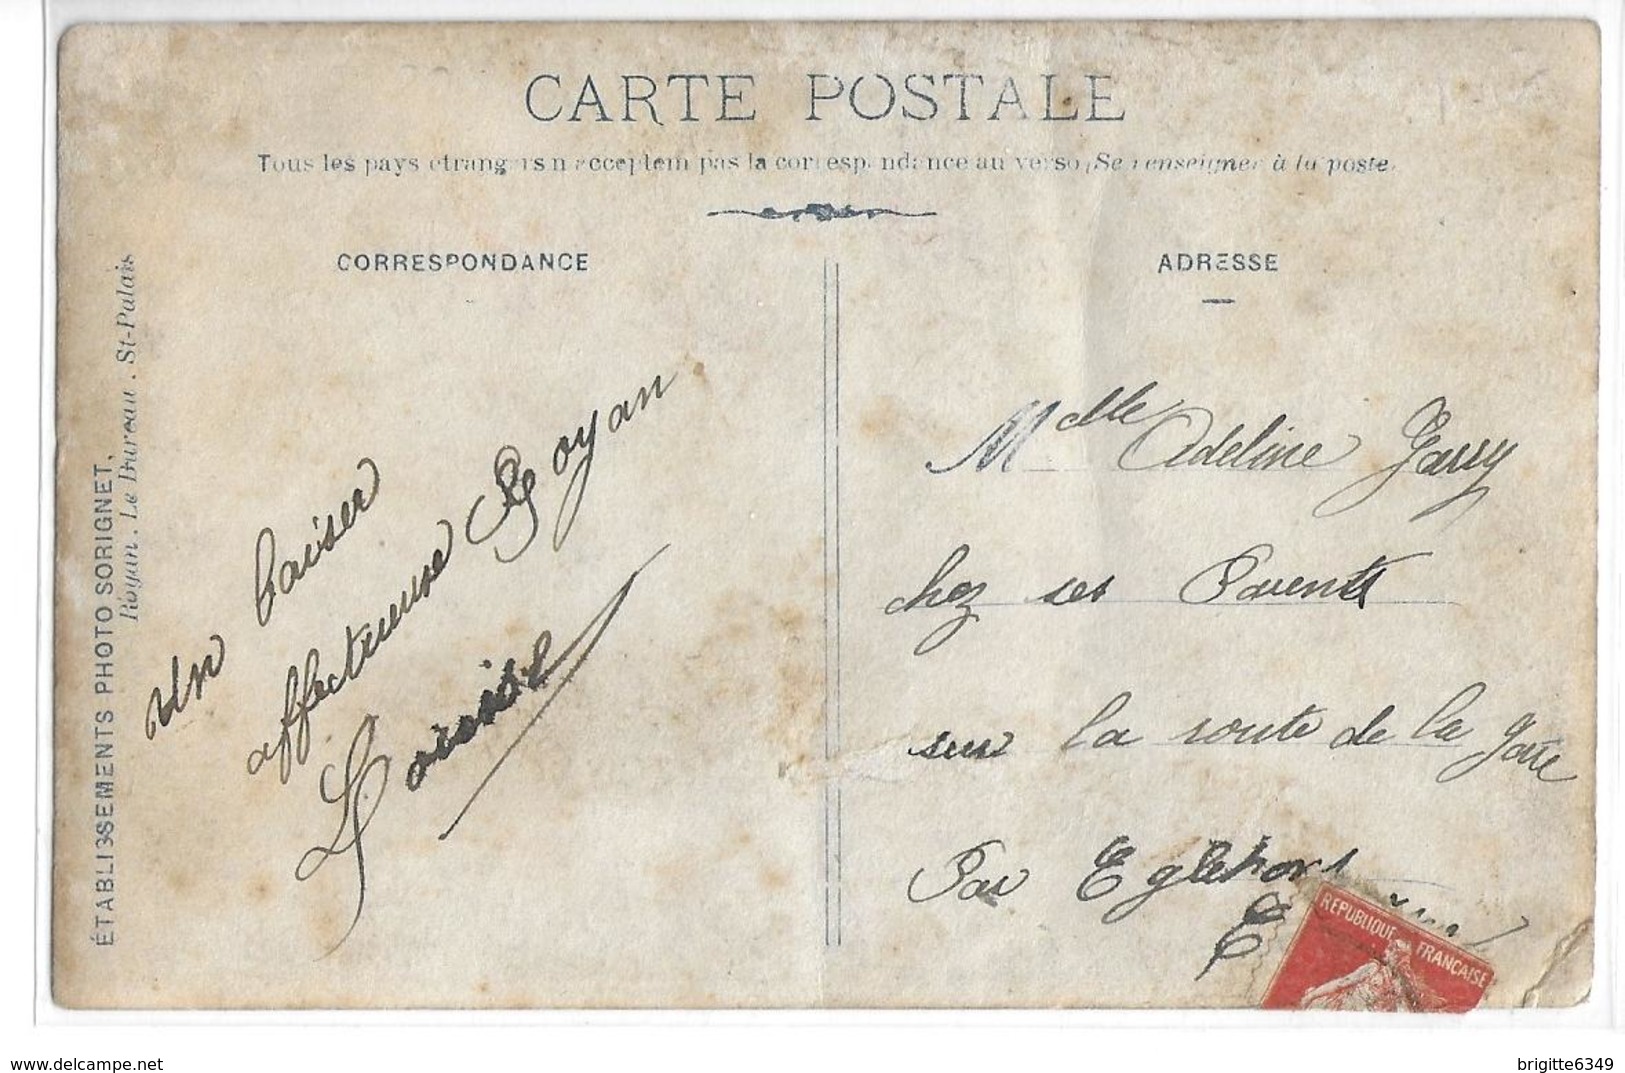 CARTE POSTALE
Tous les pays etrangers n acceptent pas la correspondance au verso (Se renseigner à la poste.
CORRESPONDANCE
ADRESSE
ÉTABLISSEMENTS PHOTO SORIGNET,
Royan. Le Bureau. St-Palais
Un baiser
affectueuse Royan
Louise
Melle Adeline Jarry
chez ses Parents
sur la route de la gare
Par
REPUBLIQUE FRANÇAISE
www.delcampe.net
brigitte6349